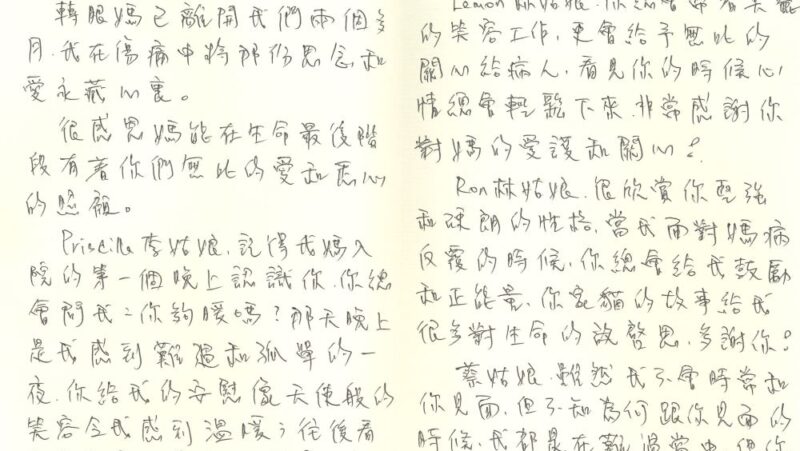 轉眼媽已離開我們兩個多
月，我在傷痛中將那份思念和
愛永藏心裏。
很感恩媽能在生命最後階
段有著你們無比的愛和悉心
的照顧。
Priscilla 李姑娘，記得我媽入
院的第一個晚上認識你，你總
會問我：你夠暖嗎？那天晚上
是我感到難過和孤單的一
夜，你給我的安慰像天使般的
笑容令我感到溫暖；往後看
Lemon 林姑娘，你總會帶着
的笑容工作，更會給予無比的
關心給病人，看見你的時候心
情總會輕鬆下來，非常感謝你
對媽的愛護和關心！
Ron 林姑娘，很欣賞你堅強
和硬朗的性格，當我面對媽病
反覆的時候，你總會給我鼓勵
和正能量，你家貓的故事給我
很多對生命的啟思，多謝你！
蔡姑娘，雖然我不會時常和
你見面，但不知為何跟你見面的
時候，我都是在難過當中，但你